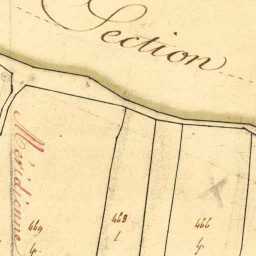 Section
Méridienne
469
468
466